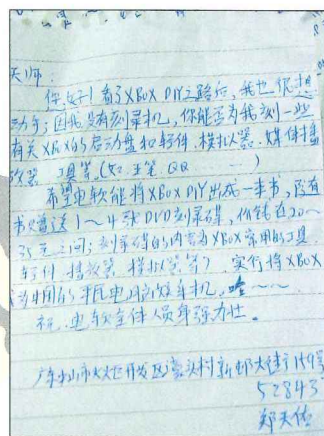 天师:
你好!看了XBOX DIY之路后,我也很想
动手;因我没有刻录机,你能否为我刻一些
有关XBOX的启动盘和软件、模拟器、媒体播
放器、工具等。(如:王笔、QQ ……)
希望电软能将XBOX DIY出成一本书,随
书赠送1~4张DVD刻录碟,价钱在20~
35元之间;刻录碟的内容为XBOX常用的工具、
软件、播放器、模拟器等)实行将XBOX
当中用的手机电脑游车机,哈~~
祝:电软全体人员年强力壮。
广东 中山市火炬开发区濠头村新邨大街 159号
52843
郑天佑